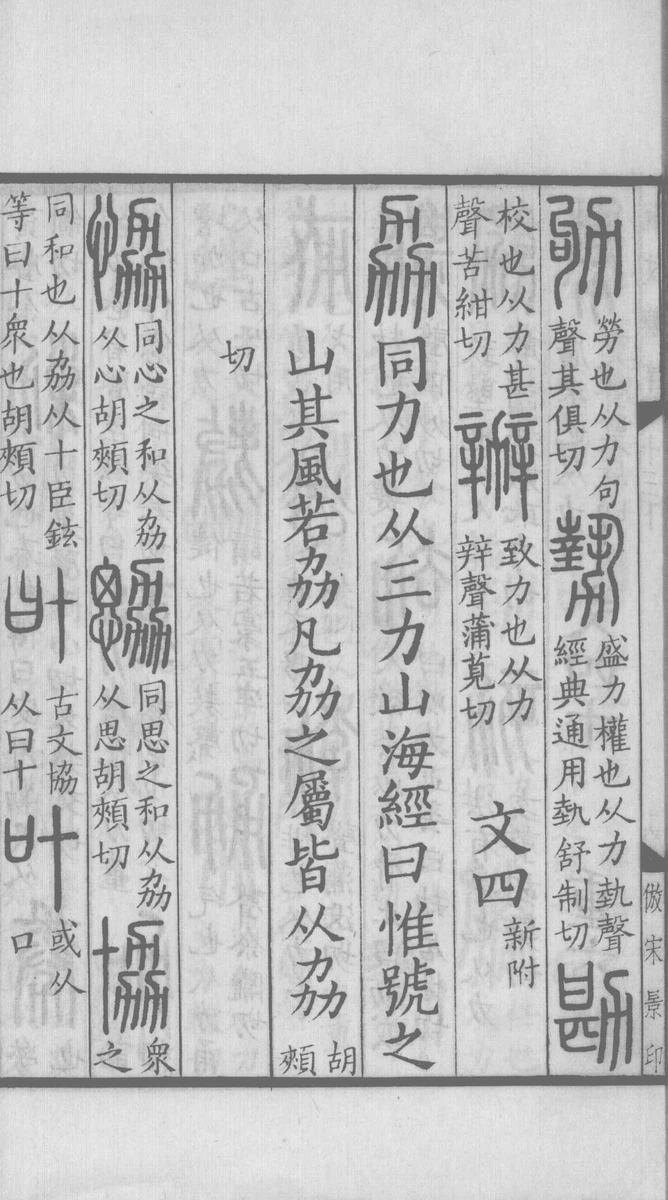 劬勞也从力句聲其俱切勢盛力權也从力埶聲經典通用埶舒制切勘
校也从力甚聲苦紺切辦致力也从力辡聲蒲莧切文四新附
劦同力也从三力山海經曰惟號之
山其風若劦凡劦之屬皆从劦胡頰
切
恊同心之和从劦从心胡頰切勰同思之和从劦从思胡頰切協衆之
同和也从劦从十臣鉉等曰十衆也胡頰切旪古文協从曰十叶或从口
倣宋景印